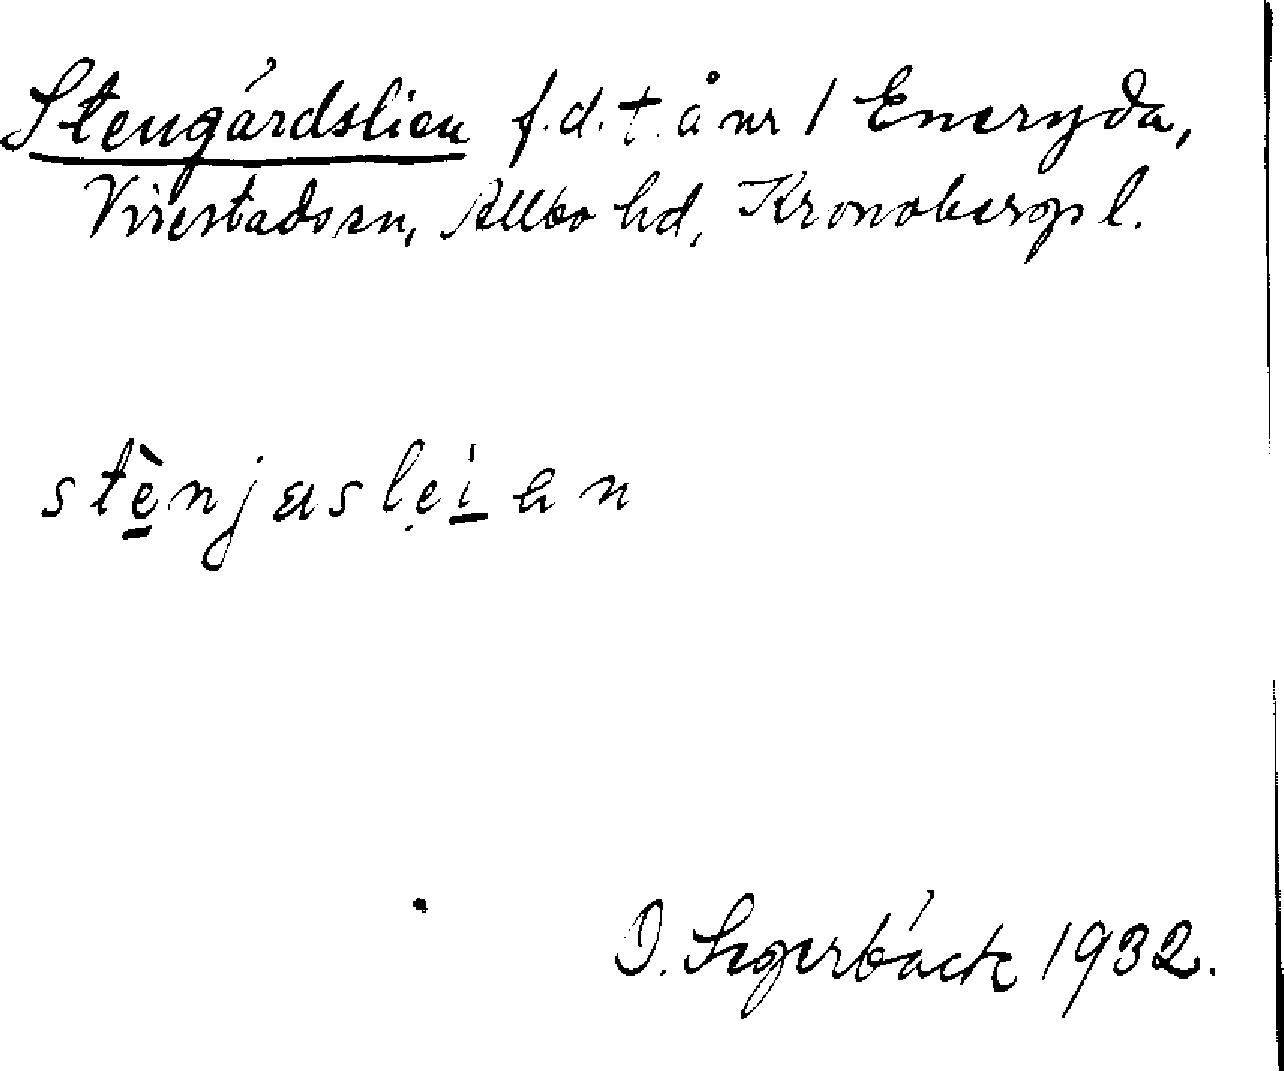 Stengårdslien f.d. t. å nr 1 Eneryda,
Virestads sn, Allbo hd, Kronobergs l.
stènjasleian
O. Segerbäck 1932.